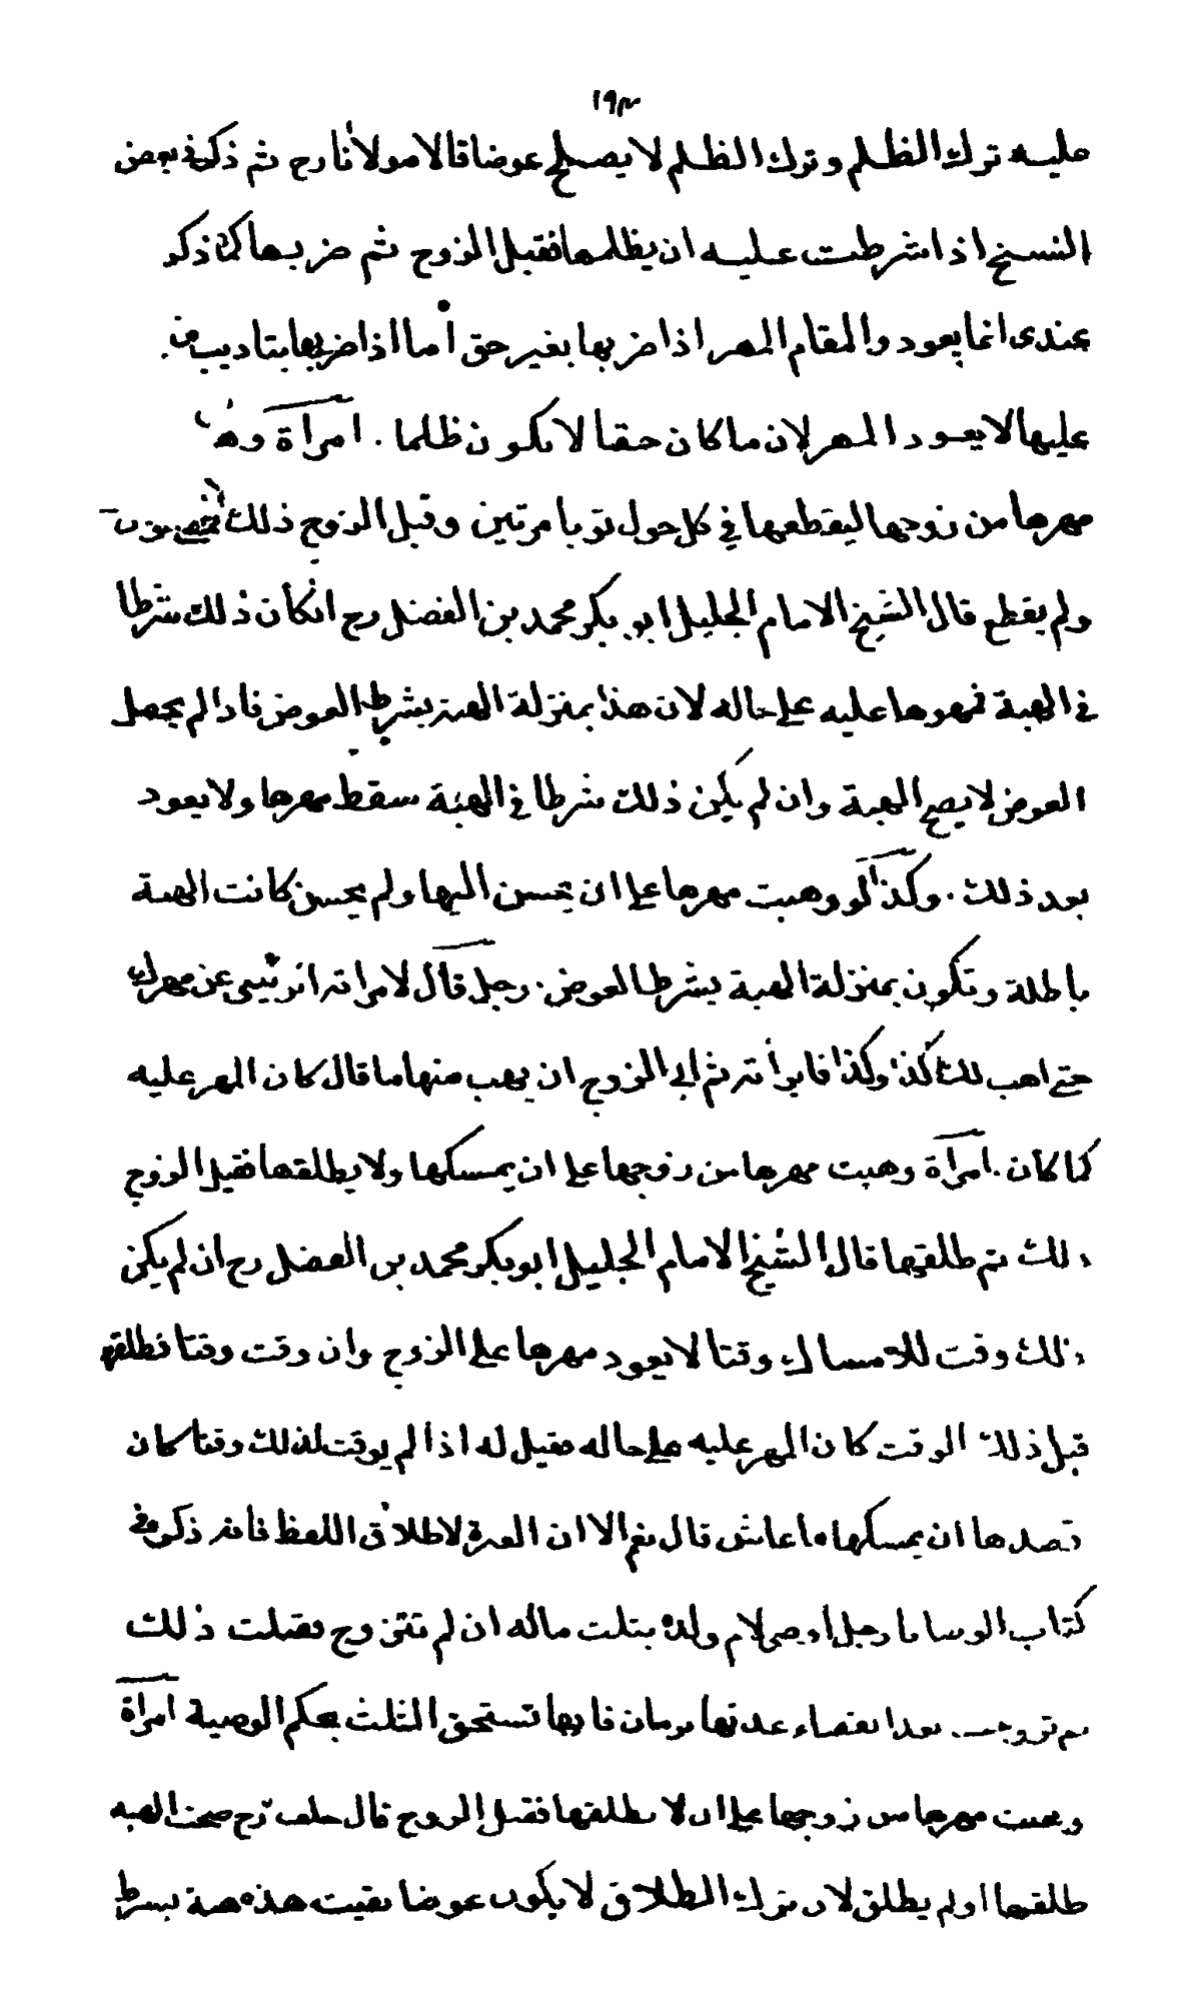 ١٩٣
عليه ترك الظلم وترك الظلم لا يصلح عوضا قال مولانا رح ثم ذكر في بعض
النسخ اذا شرطت عليه ان يظلمها فقبل الزوج ثم ضربها كما ذكر
عندى انما يعود والمقام المهر اذا ضربها بغير حق أما اذا ضربها بتاديب
عليها لا يعود المهر لان ما كان حقا لا يكون ظلما . امرأة وهبت
مهرها من زوجها ليقطعها في كل حول ثوبا مرتين وقبل الزوج ذلك
ولم يقطع قال الشيخ الامام الجليل ابو بكر محمد بن الفضل رح ان كان ذلك شرطا
في الهبة فمهرها عليه على حاله لان هذا بمنزلة الهبة بشرط العوض فاذا لم يحصل
العوض لا يصح الهبة وان لم يكن ذلك شرطا في الهبة سقط مهرها ولا يعود
بعد ذلك . وكذا لو وهبت مهرها على ان يحسن اليها ولم يحسن كانت الهبة
باطلة وتكون بمنزلة الهبة بشرط العوض . رجل قال لامراته ابرئينى عن مهرك
حتى اهب لك كذا وكذا فابرأته ثم ابى الزوج ان يهب منها ما قال كان المهر عليه
كما كان . امرأة وهبت مهرها من زوجها على ان يمسكها ولا يطلقها فقبل الزوج
ذلك ثم طلقها قال الشيخ الامام الجليل ابو بكر محمد بن الفضل رح ان لم يكن
ذلك وقت للامساك وقتا لا يعود مهرها على الزوج وان وقت وقتا فطلقها
قبل ذلك الوقت كان المهر عليه على حاله فقيل له اذا لم يوقت لذلك وقتا كان
قصدها ان يمسكها ما عاش قال نعم الا ان العبرة لاطلاق اللفظ فانه ذكر في
كتاب الوصايا رجل أوصى لام ولده بثلث ماله ان لم تتزوج فقبلت ذلك
ثم تزوجت بعد انقضاء عدتها بزمان فانها تستحق الثلث بحكم الوصية امرأة
وهبت مهرها من زوجها على ان لا يطلقها فقبل الزوج قال خلف رح صحت الهبة
طلقها اولم يطلق لان ترك الطلاق لا يكون عوضا بقيت هذه هبة بشرط